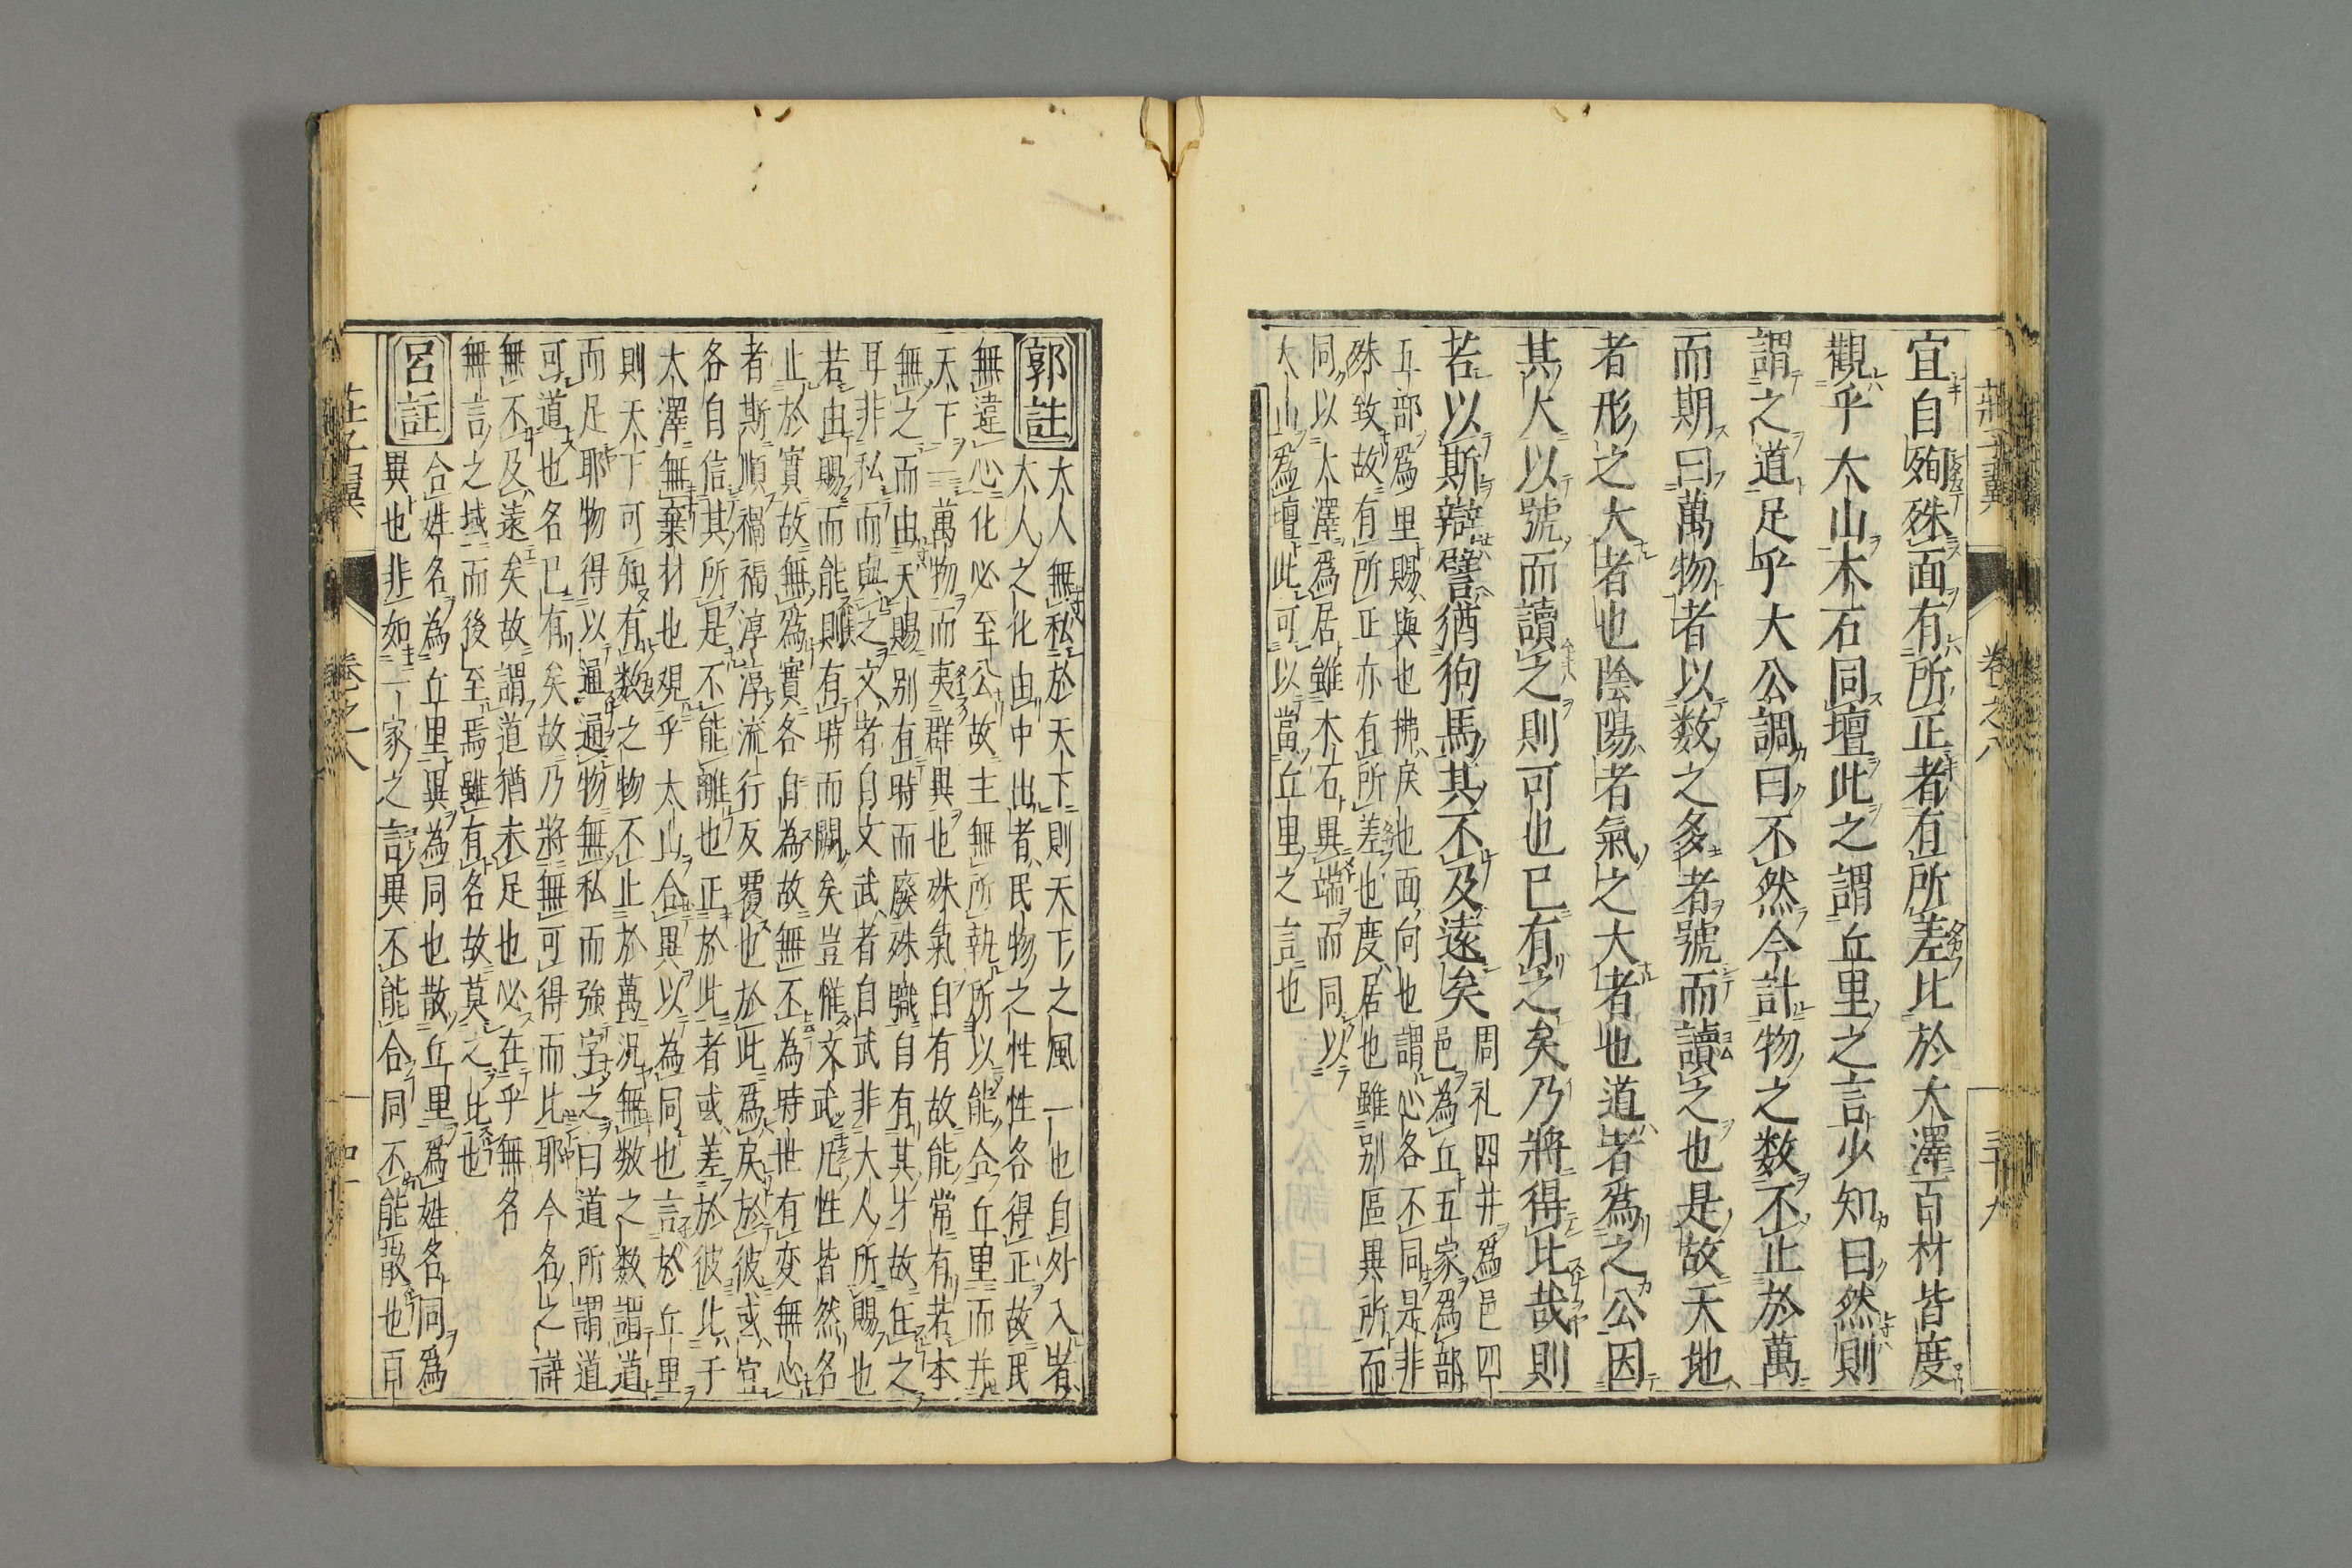 莊子翼　卷之八　三十九
宜自殉殊面有所正者有所差比於大澤百材皆度
觀乎大山木石同壇此之謂丘里之言少知曰然則
謂之道足乎大公調曰不然今計物之数不止於萬
而期曰萬物者以数之多者號而讀之也是故天地
者形之大者也陰陽者氣之大者也道者爲之公因
其大以號而讀之則可也已有之矣乃將得比哉則
若以斯辯譬猶狗馬其不及遠矣
周礼四井爲邑四
邑為丘五家爲部
五部爲里賜與也拂戾也面向也謂心各不同是非
殊致故有所正亦有所差也度居也雖别區異所而
同以大澤爲居雖木石異端而同以
大山爲壇此可以當丘里之言也
郭註
大人無私於天下則天下之風一也自外入者
大人之化由中出者民物之性性各得正故民
無違心化必至公故主無所執所以能合丘里而并
天下一萬物而夷群異也殊氣自有故能常有若本
無之而由天賜别有時而廢殊職自有其才故任之
耳非私而與之文者自文武者自武非大人所賜也
若由賜而能則有時而闕矣豈惟文武凡性皆然名
止於實故無爲實各自為故無不為時世有変無心
者斯順禍福淳淳流行反覆也於此爲戾於彼或宜
各自信其所是不能離也正於此者或差於彼比于
大澤無棄材也觀乎大山合異以為同也言於丘里
則天下可知有数之物不止於萬況無数之数謂道
而足耶物得以通通物無私而強字之曰道所謂道
可道也名已有矣故乃將無可得而比耶今名之辯
無不及遠矣故謂道猶未足也必在乎無名
無言之域而後至焉雖有名故莫之比也
呂註
合姓名為丘里異為同也散丘里爲姓名同爲
異也非如一家之言異不能合同不能散也百
莊子翼　卷之八